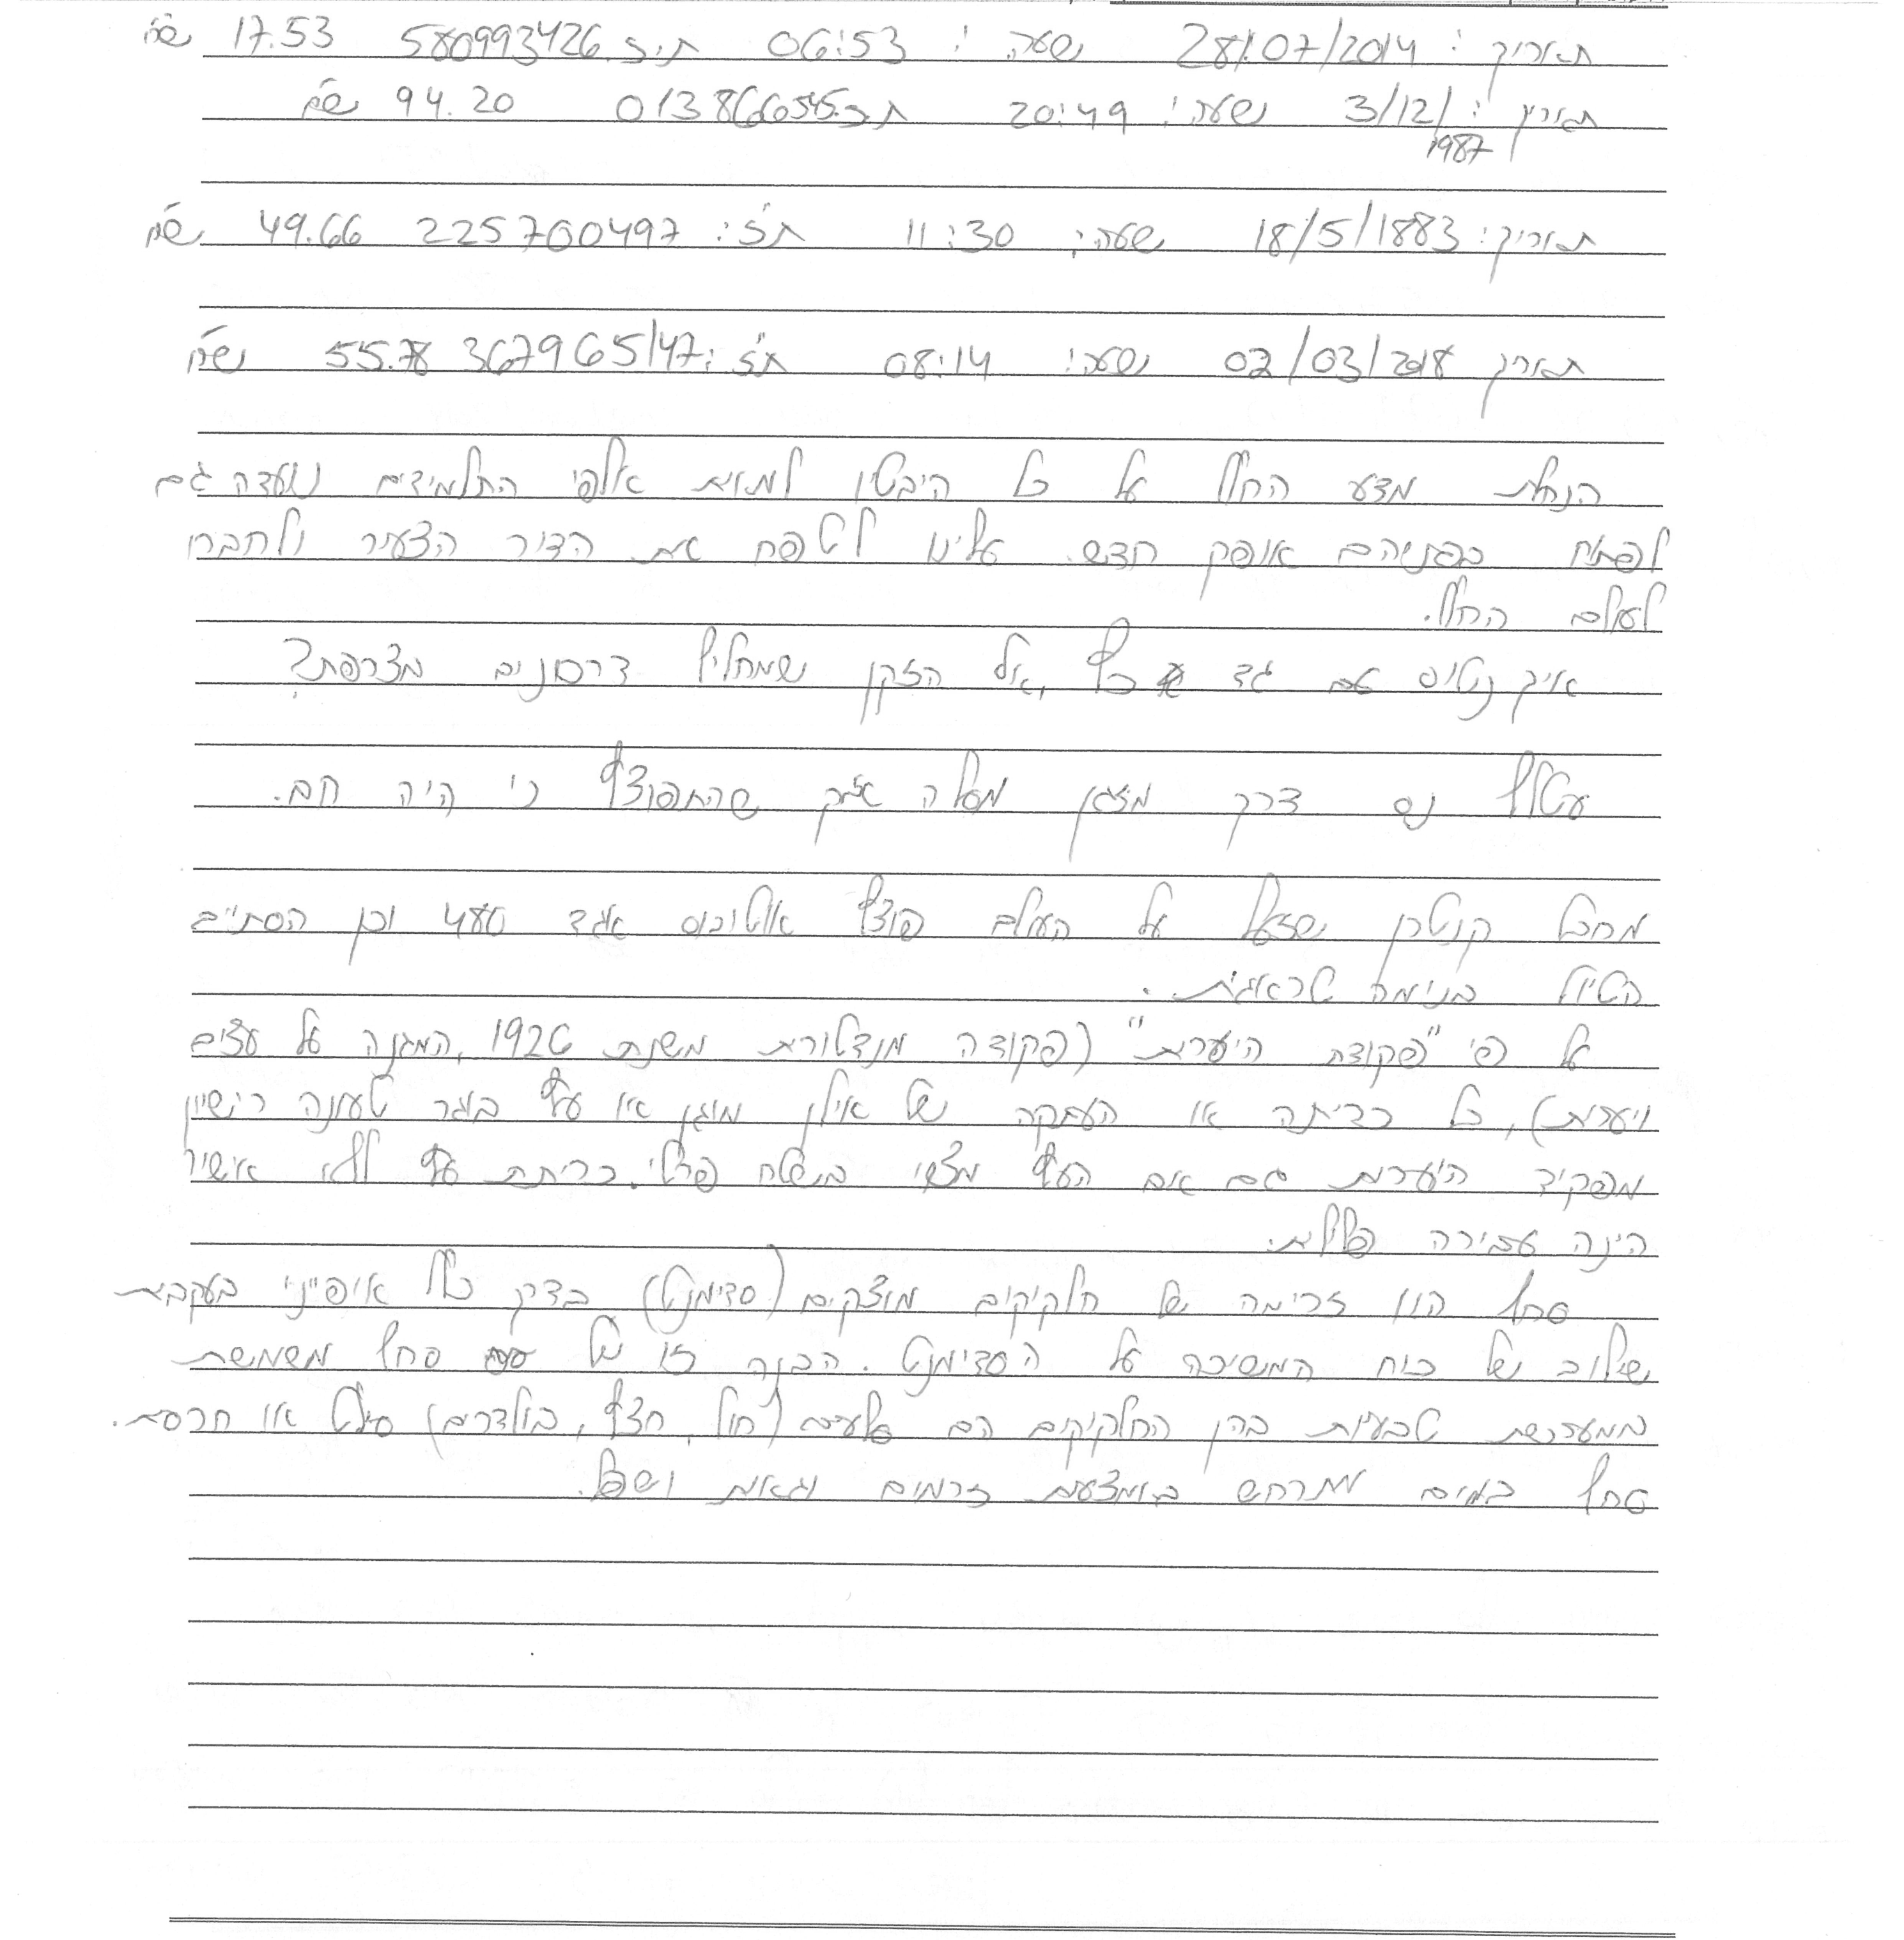 תאריך: 28/07/2014 שעה: 06:53 ת.ז. 580993426 17.53 ש"ח
תאריך: 3/12/ שעה: 20:49 ת.ז. 013866545 94.20 ש"ח
1987
תאריך: 18/5/1883 שעה: 11:30 ת"ז: 225700497 49.66 ש"ח
תאריך 02/03/2018 שעה: 08:14 ת"ז: 367965147 55.78 ש"ח
הנחלת מדע החלל על כל היבטיו למאות אלפי התלמידים נועדה גם
לפתוח בפניהם אופק חדש. עלינו לטפח את הדור הצעיר ולחברו
לעולם החלל.
איך נטוס עם גד כץ, אל הזקן שמחליף דרכונים מצרפת?
עטלף נס דרך מזגן מסלה אזק שהתפוצץ כי היה חם.
מחבל קנטרן שזעל על העולם פוצץ אוטובוס אגד 480 וכן הסתיים
הטיול בנימה טראגית.
על פי "פקודת היערות" (פקודה מנדטורית משנת 1926, המגנה על עצים
ויערות), כל כריתה או העתקה של אילן מוגן או עץ בוגר טעונה רישיון
מפקיד היערות גם אם העץ מצוי בשטח פרטי. כריתת עץ ללא אישור
הינה עבירה פלילית.
סחף הנו זרימה של חלקיקים מוצקים (סדימנט) בדרך כלל אופייני בעקבות
שילוב של כוח המשיכה על הסדימנט. הבנה זו של סחף משמשת
במערכות טבעיות בהן החלקיקים הם סלעים (חול, חצץ, בולדרים) סילט או חרסית.
סחף במים מתרחש באמצעות זרמים וגאות ושפל.